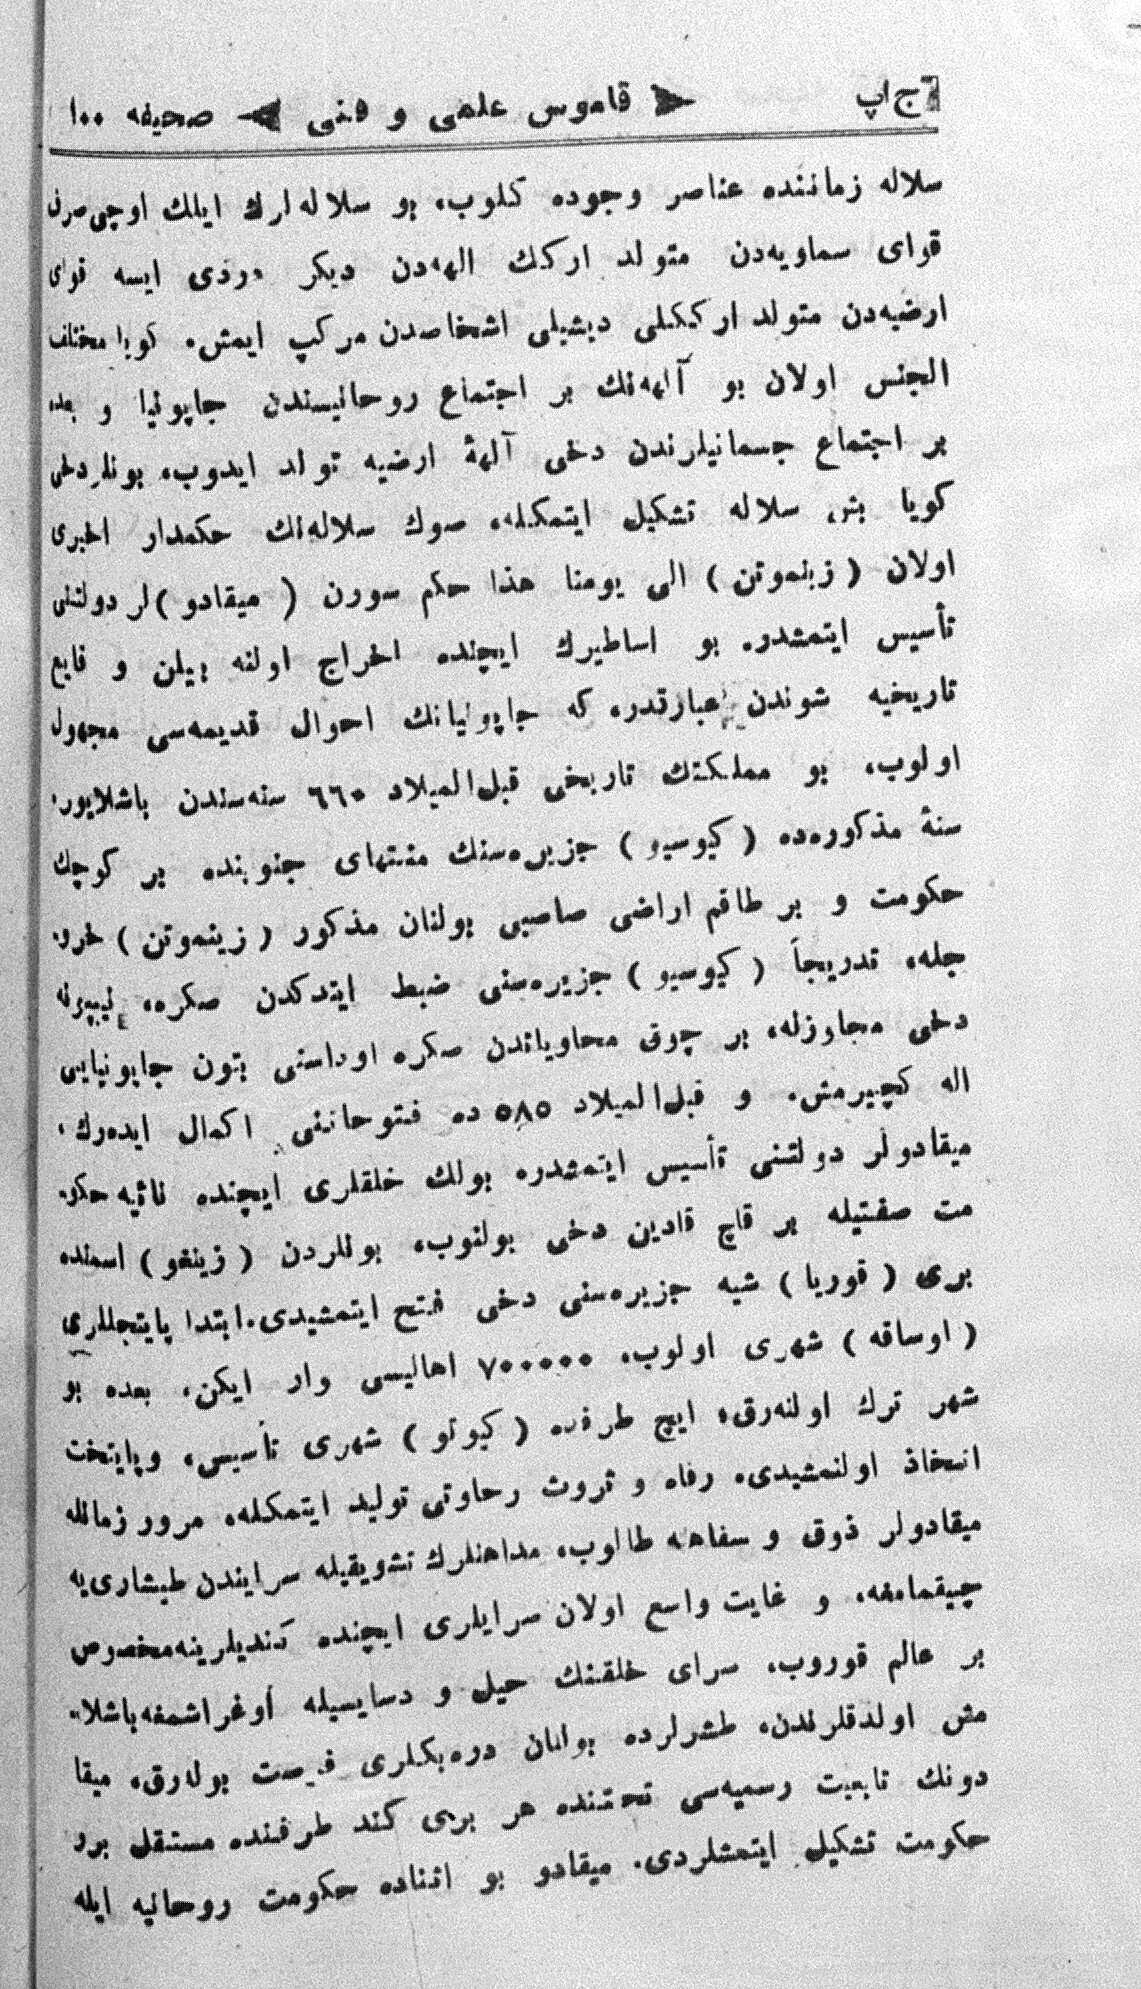 ج اپ قاموس علمی و فنی صحیفه ١٠٠
سلاله زماننده عناصر وجوده كلوب، بو سلاله‌لرك ایلك اوچی صرف
قوای سماویه‌دن متولد اركك الهه‌دن دیكر دردی ایسه قوای
ارضیه‌دن متولد ارككلی دیشیلی اشخاصدن مركب ایمش. كویا مختلف
الجنس اولان بو آلهه‌نك بر اجتماع روحانیسندن جاپونیا و بعده
بر اجتماع جسمانیلرندن دخی آلهۀ ارضیه تولد ایدوب، بونلر دخی
كویا بش سلاله تشكیل ایتمكله، صوك سلاله‌نك حكمدار اخیری
اولان ( زینموتن ) الی یومنا هذا حكم سورن ( میقادو ) لر دولتنی
تأسیس ایتمشدر. بو اساطیرك ایچنده اخراج اولنه بیلن و قایع
تاریخیه شوندن عبارتدر، كه جاپونیانك احوال قدیمه‌سی مجهول
اولوب، بو مملكتك تاریخی قبل‌المیلاد ٦٦٠ سنه‌سندن باشلایور.
سنۀ مذكوره‌ده ( كیوسیو ) جزیره‌سنك منتهای جنوبنده بر كوچك
حكومت و بر طاقم اراضی صاصبی بولنان مذكور ( زینموتن ) خرو
جله، تدریجاً ( كیوسیو ) جزیره‌سنی ضبط ایتدكدن صكره، نیپونه
دخی مجاوزله، بر چوق محاویاتدن صكره اوراسنی بتون جاپونیایی
اله كچیرمش. و قبل‌المیلاد ٥٨٥ ده فتوحاتنی اكمال ایده‌رك،
میقادولر دولتنی تأسیس ایتمشدر، بولك خلقلری ایچنده نائبه حكو
مت صفتیله بر قاچ قادین دخی بولنوب، بونلردن ( زینغو ) اسمنده
بری ( قوریا ) شبه جزیره‌سنی دخی فتح ایتمشیدی. ابتدا پایتختلری
( اوساقه ) شهری اولوب، ٧٠٠٠٠٠ اهالیسی وار ایكن، بعده بو
شهر ترك اولنه‌رق، ایچ طرفده ( كیوتو ) شهری تأسیس، و پایتخت
اتخاذ اولنمشیدی. رفاه و ثروت رخاوتی تولید ایتمكله، مرور زمانله
میقادولر ذوق و سفاهته طالوب، مداهنلرك تشویقیله سرایندن طیشاری‌یه
چیقمامغه، و غایت واسع اولان سرایلری ایچنده كندیلرینه مخصوص
بر عالم قوروب، سرای خلقنك حیل و دسایسیله اوغراشمغه باشلا
مش اولدقلرندن، طشرلرده بولنان دره‌بكلری فرصت بوله‌رق، میقا
دونك تابعیت رسمیه‌سی تحتنده هر بری كند طرفنده مستقل برر
حكومت تشكیل ایتمشلردی. میقادو بو اثناده حكومت روحانیه ایله